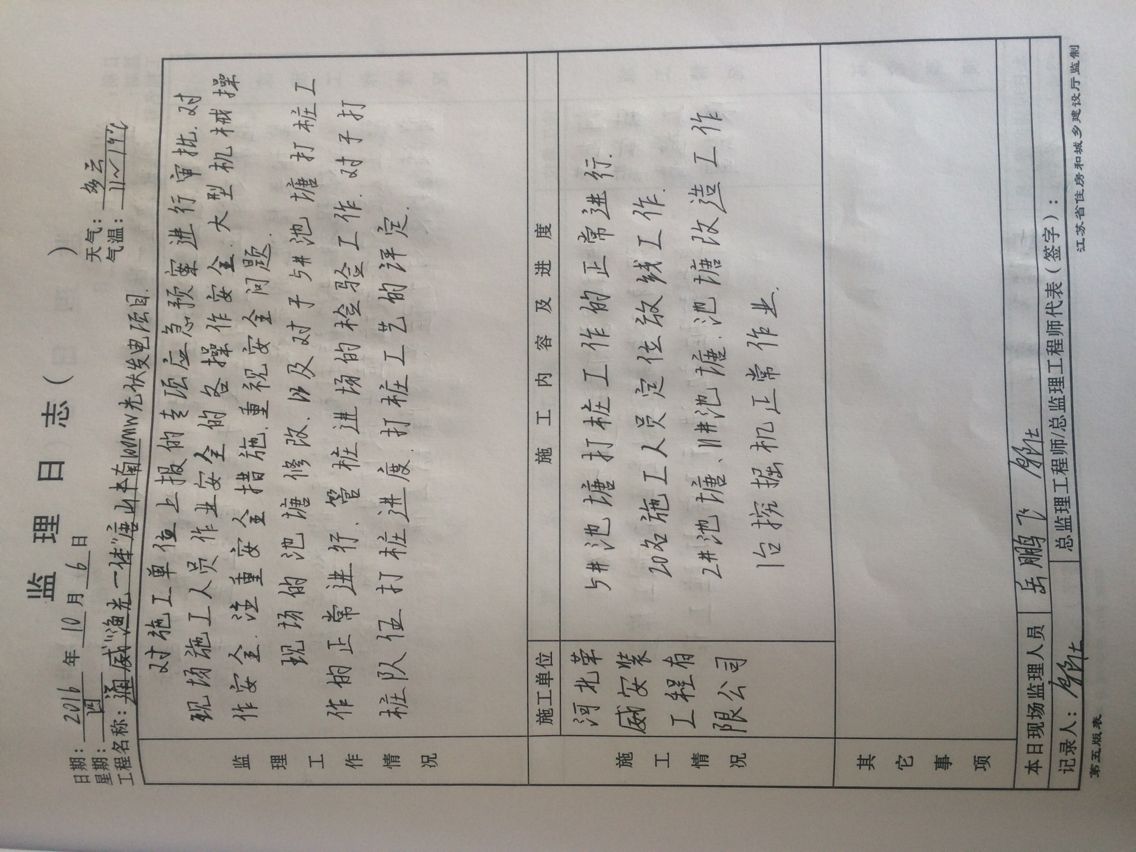 监理日志（ ）
日期：2016年10月6日 天气：多云
星期：四 气温：11~19℃
工程名称：通威"渔光一体"唐山丰南100MW光伏发电项目.
监理工作情况
对施工单位上报的专项应急预案进行审批.对
现场施工人员作业安全的各操作安全.大型机械操
作安全.注重安全措施.重视安全问题.
现场的池塘修改.以及对于5#池塘打桩工
作的正常进行.管桩进场的检验工作.对于打
桩队伍打桩进度.打桩工艺的评定.
施工情况
施工单位 施工内容及进度
河北華
威安装
工程有
限公司
5#池塘打桩工作的正常进行.
20名施工人员定位放线工作.
2#池塘、11#池塘.池塘改造工作
1台挖掘机正常作业.
其它事项
本日现场监理人员 岳鹏飞
记录人： 总监理工程师/总监理工程师代表（签字）：
第五版表 江苏省住房和城乡建设厅监制